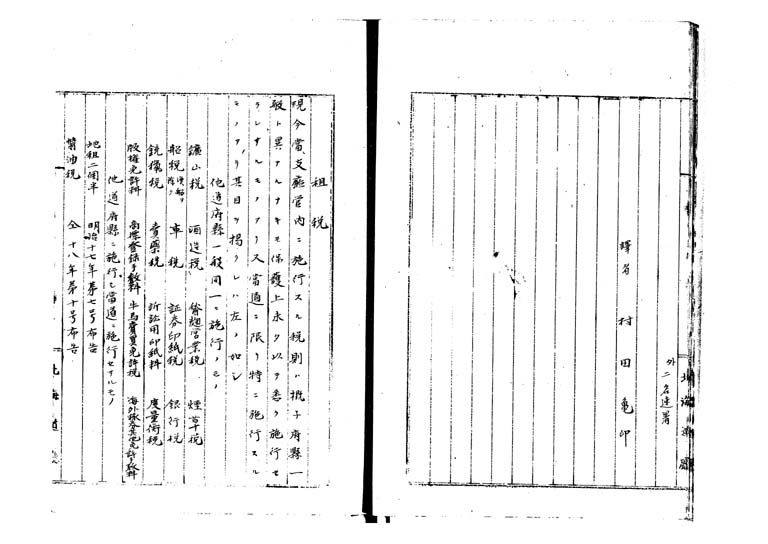 外二名連署
譯者 村田亀印
租税
現今當支廰管内ニ施行スル税則ハ概子府縣一
般ト異ナルナキモ保護上未タ以テ悉ク施行セ
ラレサルモノアリ又當道ニ限リ特ニ施行スル
モノアリ其目ヲ掲クレハ左ノ如シ
他道府縣一般同一ニ施行ノモノ
鑛山税 酒造税 營業税 煙草税
船税 車税 証券印紙税 銀行税
銃獵税 賣藥税 訴訟用印紙料 度量衡税
版權免許料 商標登録手数料 牛馬賣買免許税 海外旅券其他免許手数料
他道府縣ニ施行シ當道ニ施行セサルモノ
地租二個半 明治十七年第七号布告
醤油税 仝十八年第十号布告
北海道